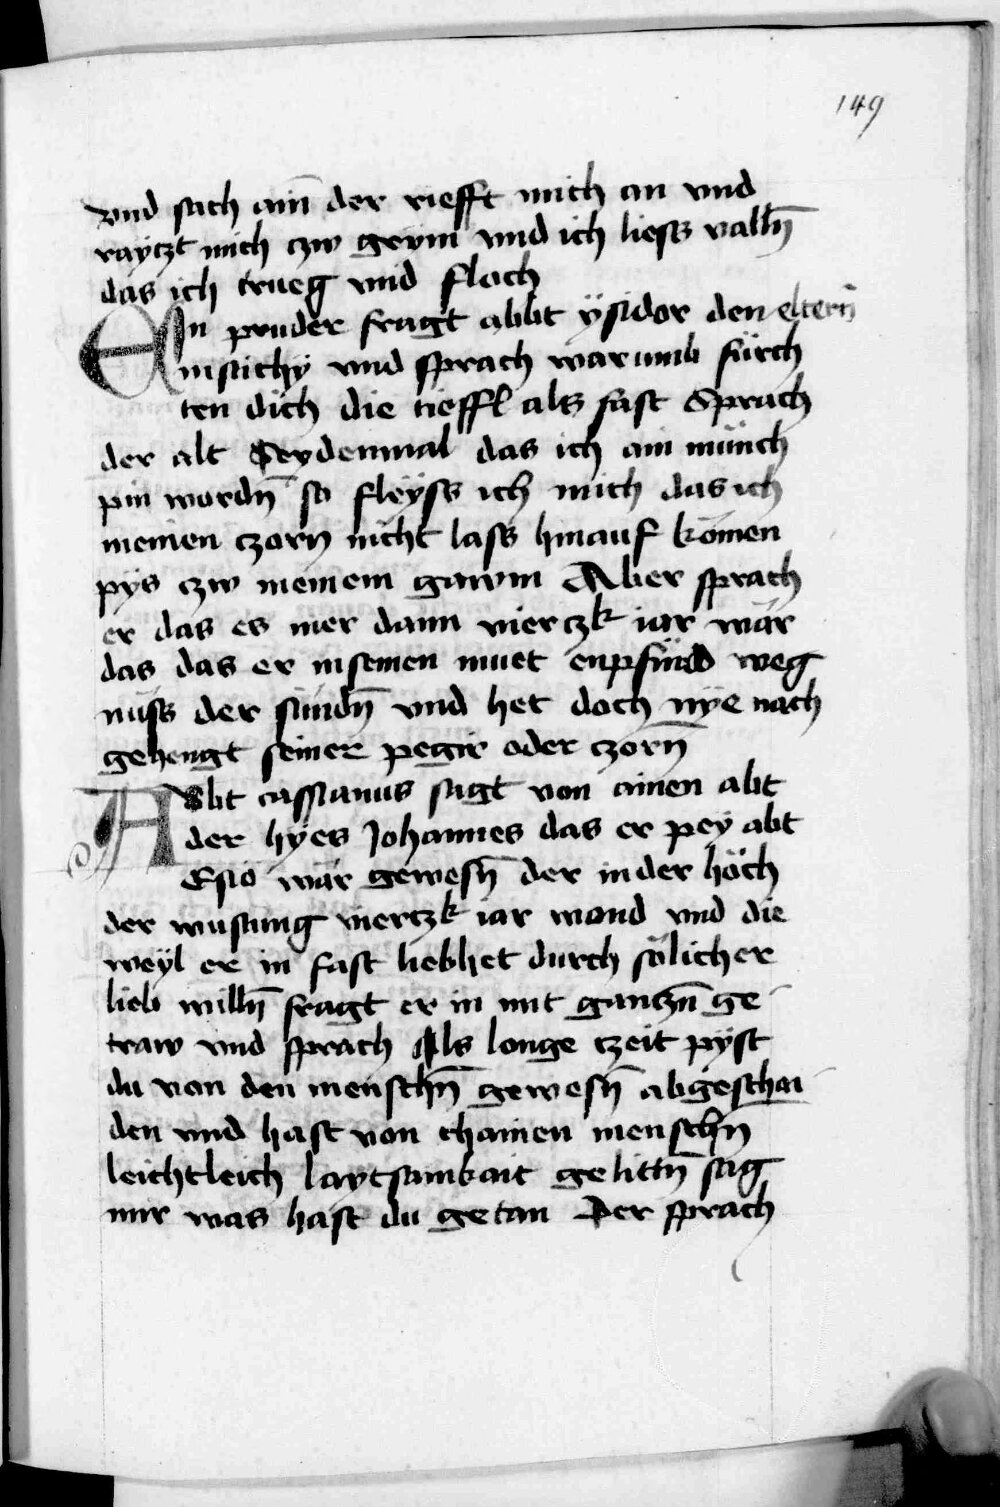 149
vnd sach ain̄ der riefft mich an vnd
raÿczt mich czw grym vnd ich liess valln̄
das ich trueg vnd floch
EIn pruder fragt abbt ÿsidor den eltern̄
in sichÿ vnd sprach warumb fürch
ten dich die tieffl als fast Sprach
der alt Seydenmal das ich ain münch
pin wordn̄ so fleÿss ich mich das ich
meinen czorn nicht lass hinauf kömen
pÿs czw meinem gawm Aber sprach
er das es mer dann vierczk iar wär
das das er in seinen muet enpfind weg
nüss der sündn̄ vnd het doch nÿe nach
gehengt seiner pegir oder czorn̄
ABbt cassianus sagt von ainen abt
der hÿes Johannes das er peÿ abt
Esio wär gewesn̄ der in der höch
der wustung vierczk iar wond vnd die
weÿl er in fast liebhet durch sölicher
lieb willn̄ fragt er in mit ganczn̄ ge
traw vnd sprach Als longe czeit pÿst
du von den menschn̄ gewesn̄ abgeschai
den vnd hast von chainen menschn̄
leichtleich laytsamkait gelittn̄ sag
mir was hast du getan Der sprach